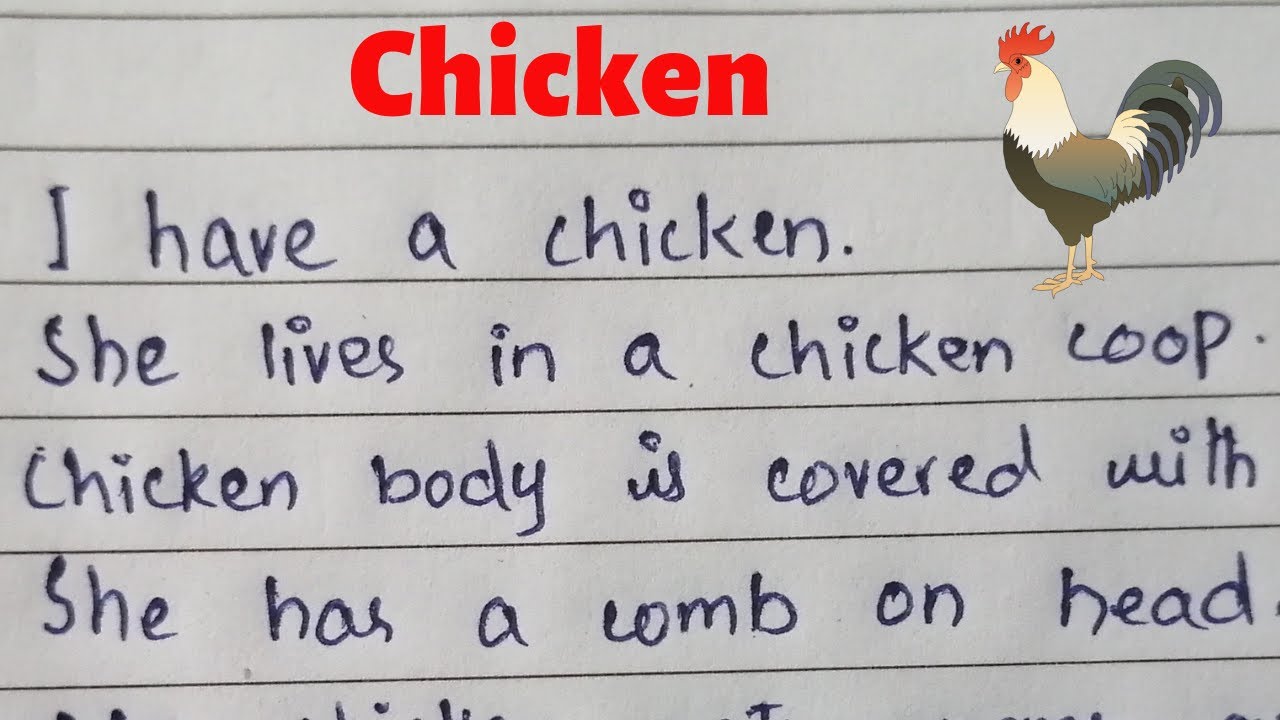 Chicken
I have a chicken.
She lives in a chicken coop.
Chicken body is covered with
She has a comb on head.